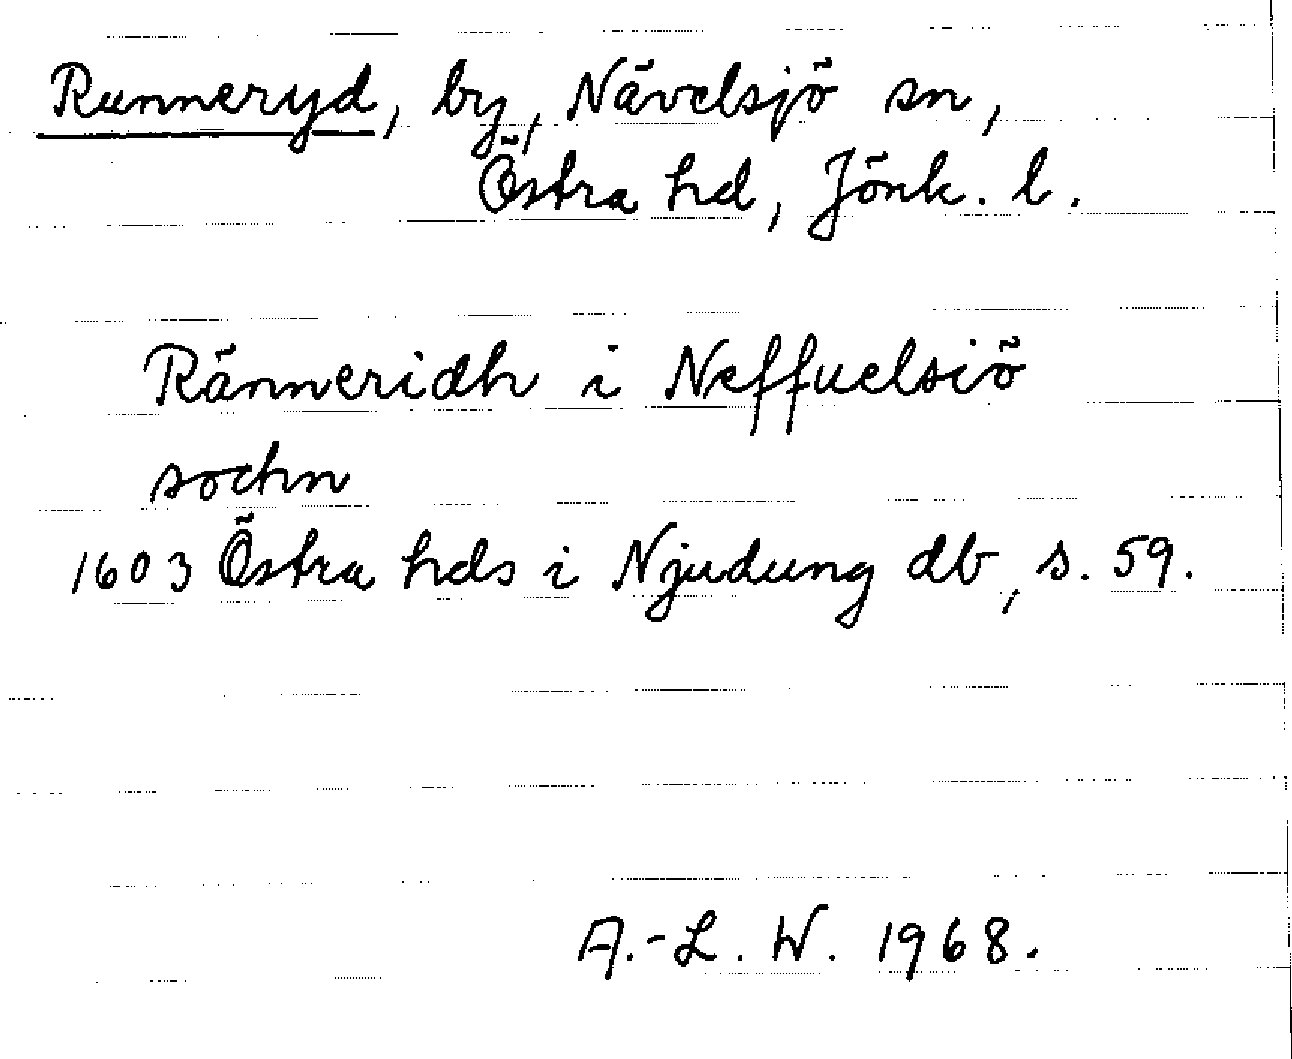 Runneryd, by, Nävelsjö sn,
Östra hd, Jönk. l.
Ränneridh i Neffuelsiö
sochn
1603 Östra hds i Njudung db, s. 59.
A.-L. W. 1968.